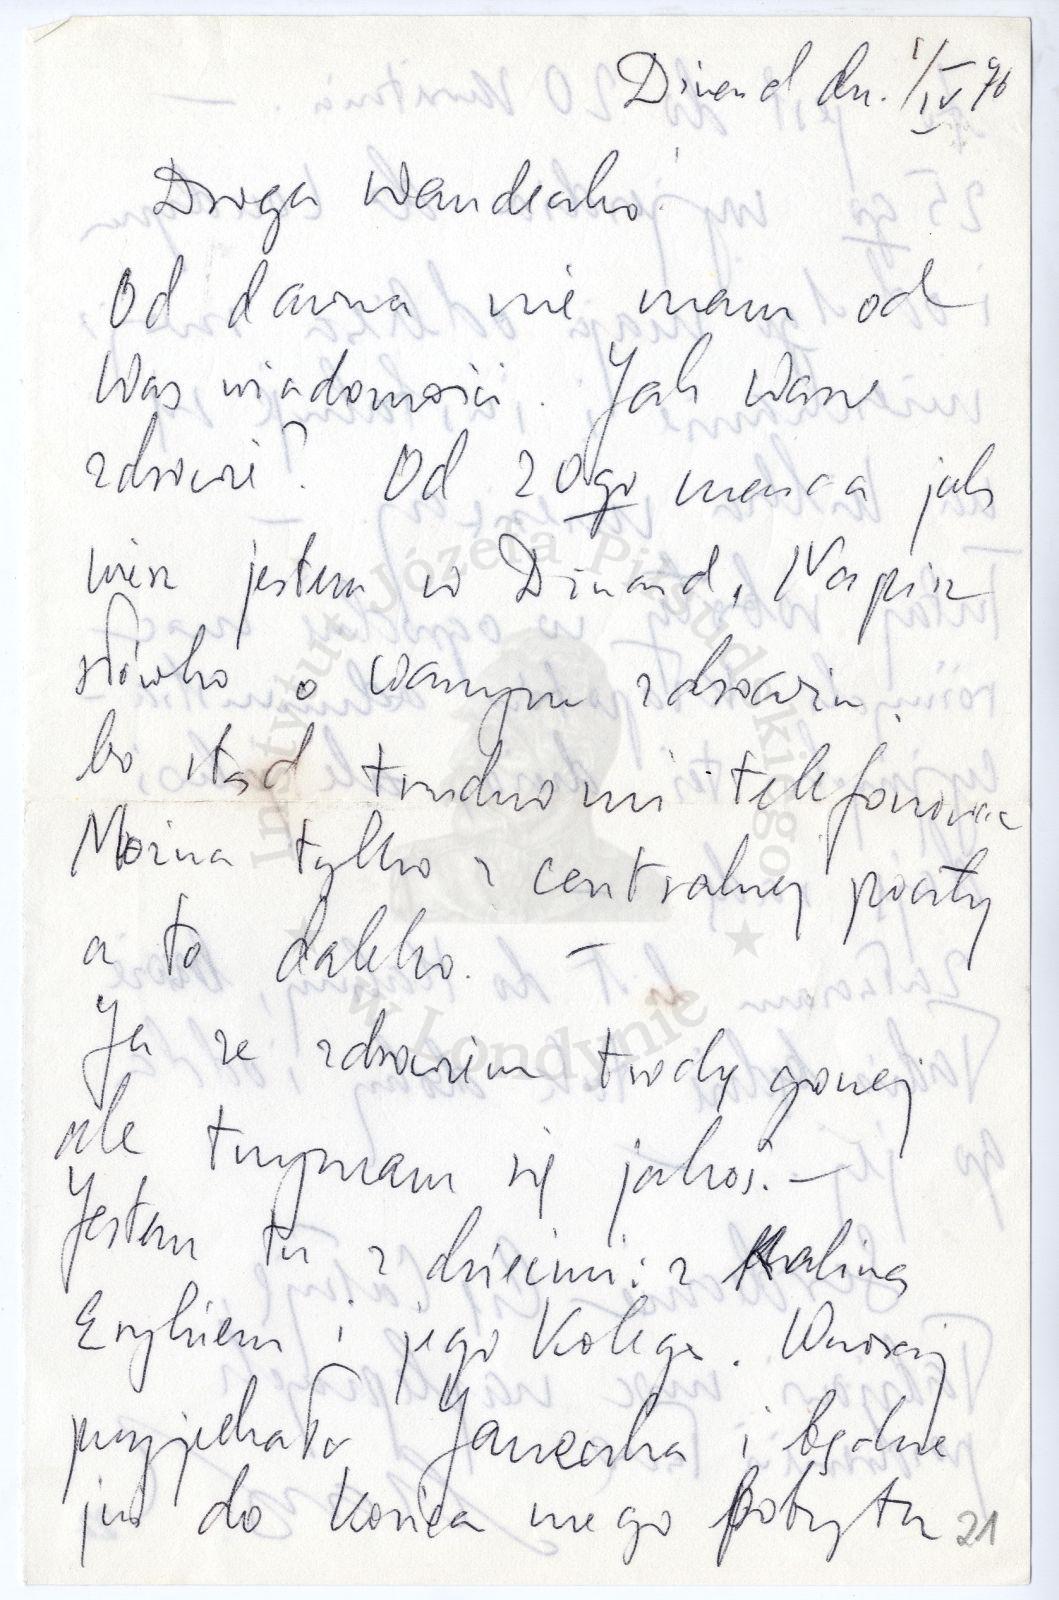 Dinard dn. 1/IV 76
Droga Wandeczko!
Od dawna nie mam od
Was wiadomości. Jak Wasze
zdrowie? Od 20go marca jak
wiesz jestem w Dinard. Napisz
słówko o waszym zdrowiu
bo stąd trudno mi telefonować
Można tylko z centralnej poczty
a to daleko. –
Ja ze zdrowiem trochę gorzej
ale trzymam się jakoś. –
Jestem tu z dziećmi: z Haliną
Erykiem i jego Kolegą. Wczoraj
przyjechała Janeczka i będzie
już do końca mego pobytu
21
Instytut Józefa Piłsudskiego
w Londynie